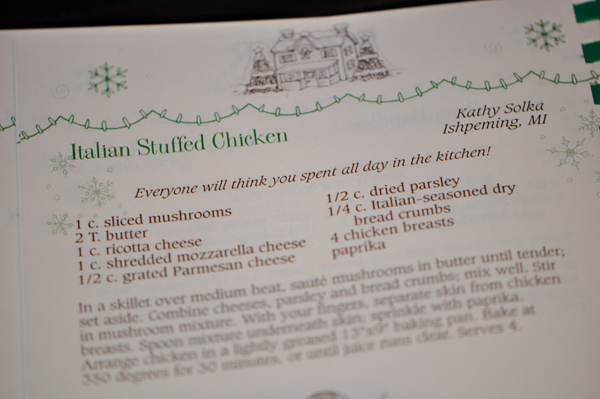 Italian Stuffed Chicken
Kathy Solka
Ishpeming, MI
Everyone will think you spent all day in the kitchen!
1 c. sliced mushrooms
2 T. butter
1 c. ricotta cheese
1 c. shredded mozzarella cheese
1/2 c. grated Parmesan cheese
1/2 c. dried parsley
1/4 c. Italian-seasoned dry
bread crumbs
4 chicken breasts
paprika
In a skillet over medium heat, sauté mushrooms in butter until tender;
set aside. Combine cheeses, parsley and bread crumbs; mix well. Stir
in mushroom mixture. With your fingers, separate skin from chicken
breasts. Spoon mixture underneath skin; sprinkle with paprika.
Arrange chicken in a lightly greased 13"x9" baking pan. Bake at
350 degrees for 30 minutes, or until juice runs clear. Serves 4.